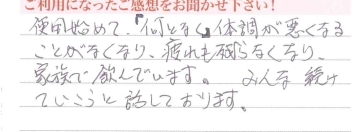 ご利用になったご感想をお聞かせ下さい!
使用始めて、『何となく』体調が悪くなる
ことがなくなり、疲れも残らなくなり、
家族で飲んでいます。 みんな続け
ていこうと話しております。